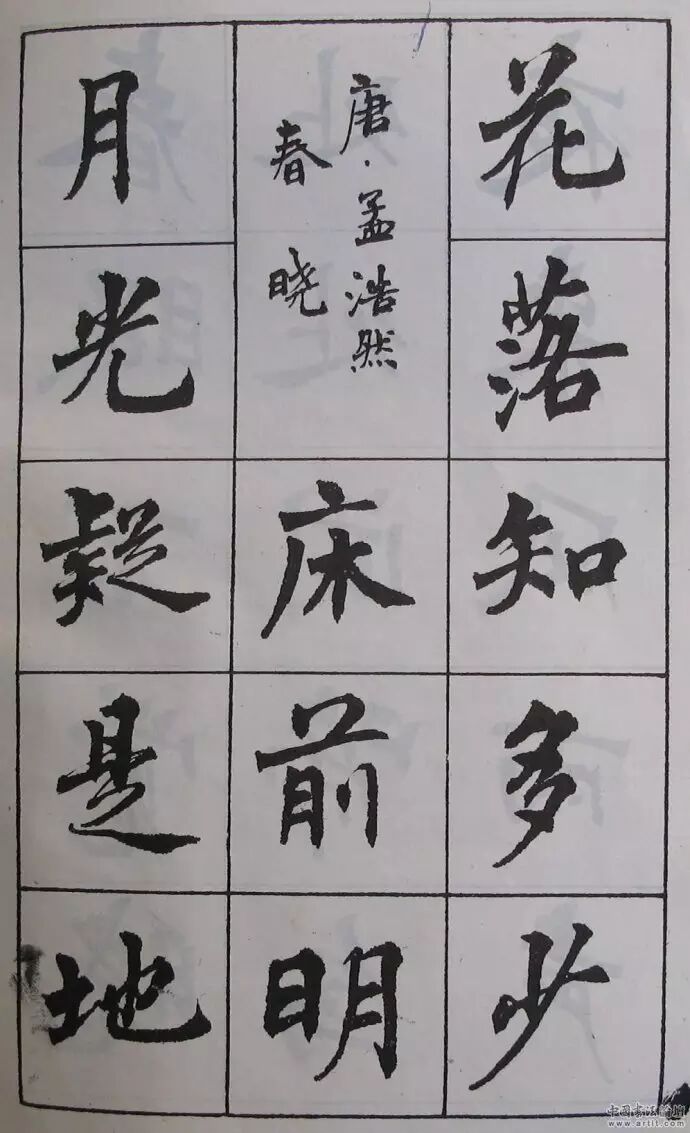 花落知多少
唐·孟浩然
春晓
床前明
月光疑是地
中国书法论坛
www.artit.com